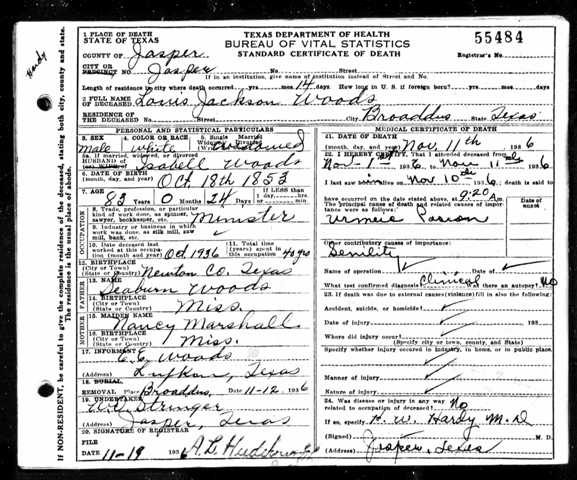 1 PLACE OF DEATH
STATE OF TEXAS
TEXAS DEPARTMENT OF HEALTH
BUREAU OF VITAL STATISTICS
STANDARD CERTIFICATE OF DEATH
55484
Registrar's No.
COUNTY OF Jasper
CITY OR PRECINCT NO Jasper No. Street
If in an institution, give name of institution instead of Street and No.
Length of residence in city where death occurred yrs. mos. 14 days. How long in U. S. if foreign born? yrs. mos. days.
2 FULL NAME OF DECEASED Louis Jackson Woods
RESIDENCE OF THE DECEASED No. Street City Broaddus State Texas
PERSONAL AND STATISTICAL PARTICULARS
3. SEX Male
4. COLOR OR RACE White
5. Single Married Widowed Divorced Widowed
5a. If married, widowed, or divorced
HUSBAND OF
(or) WIFE OF Isabell Woods
6. DATE OF BIRTH
(month, day, and year) Oct. 18th 1853
7. AGE 83 Years 0 Months 24 Days
8. Trade, profession, or particular kind of work done, as spinner, sawyer, bookkeeper, etc. Minister
9. Industry or business in which work was done, as silk mill, saw mill, bank, etc.
10. Date deceased last worked at this occupation (month and year) Oct 1936
11. Total time (years) spent in this occupation 40 yrs
12. BIRTHPLACE
(City or Town)
(State or Country) Newton Co. Texas
13. NAME Seaburn Woods
14. BIRTHPLACE
(City or Town)
(State or Country) Miss.
15. MAIDEN NAME Nancy Marshall
16. BIRTHPLACE
(City or Town)
(State or Country) Miss.
17. INFORMANT C. E. Woods
(Address) Lufkin, Texas
18. BURIAL
REMOVAL Broaddus, Date 11-12 1936
19. UNDERTAKER Stringer
(Address) Jasper, Texas
20. SIGNATURE OF REGISTRAR
FILE
DATE 11-19 1936 A. L.
MEDICAL CERTIFICATE OF DEATH
21. DATE OF DEATH
(month, day, and year) Nov. 11th 1936
22. I HEREBY CERTIFY, That I attended deceased from
Nov- 1st 1936 to Nov 11th 1936
I last saw him alive on Nov 10th 1936 death is said to
have occurred on the date stated above, at 9:20 A. M.
The principal cause of death and related causes of importance were as follows:
Date of onset
Contributory causes of importance:
Senility
Name of operation Date of
What test confirmed diagnosis? Clinical Was there an autopsy? No
23. If death was due to external causes (violence) fill in also the following:
Accident, suicide, or homicide?
Date of injury 193
Where did injury occur?
(Specify city or town, county, and State)
Specify whether injury occurred in industry, in home, or in public place
Manner of injury
Nature of injury
24. Was disease or injury in any way related to occupation of deceased? No
If so, specify
(Signed) H. W. Hardy M. D. M. D.
(Address) Jasper, Texas
OCCUPATION
FATHER
MOTHER
Hardy
IF NON-RESIDENT, be careful to give the complete residence of the deceased, stating both city, county and state.
The residence is the usual place of abode.